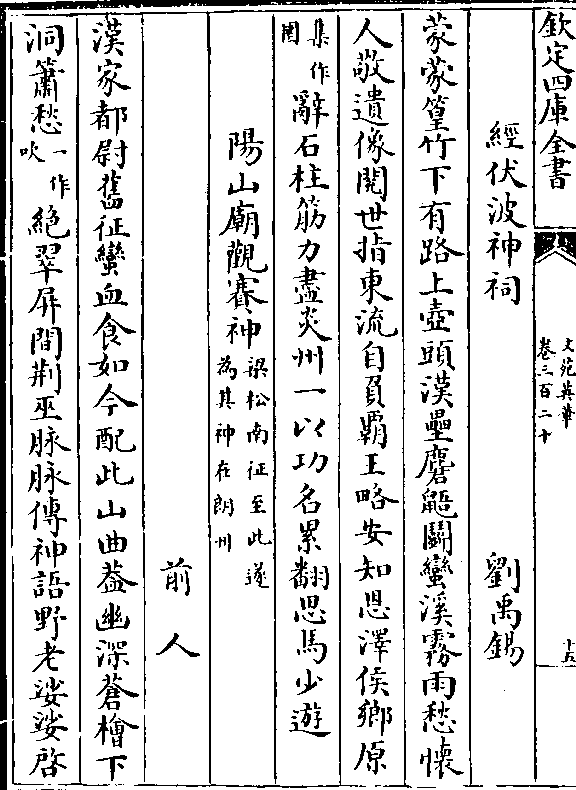 欽定四庫全書
文苑英華
卷三百二十
十五
經伏波神祠 劉禹錫
蒙蒙篁竹下有路上壺頭漢壘麏鼯鬬蠻溪霧雨愁懷
人敬遺像閱世指東流自負霸王略安知恩澤侯鄉原
集作園辭石柱筋力盡炎州一以功名累翻思馬少遊
陽山廟觀賽神梁松南征至此遂為其神在朗州
前人
漢家都尉舊征蠻血食如今配此山曲葢幽深蒼檜下
洞簫愁一作吹絶翠屏間荆巫脉脉傳神語野老娑娑啓